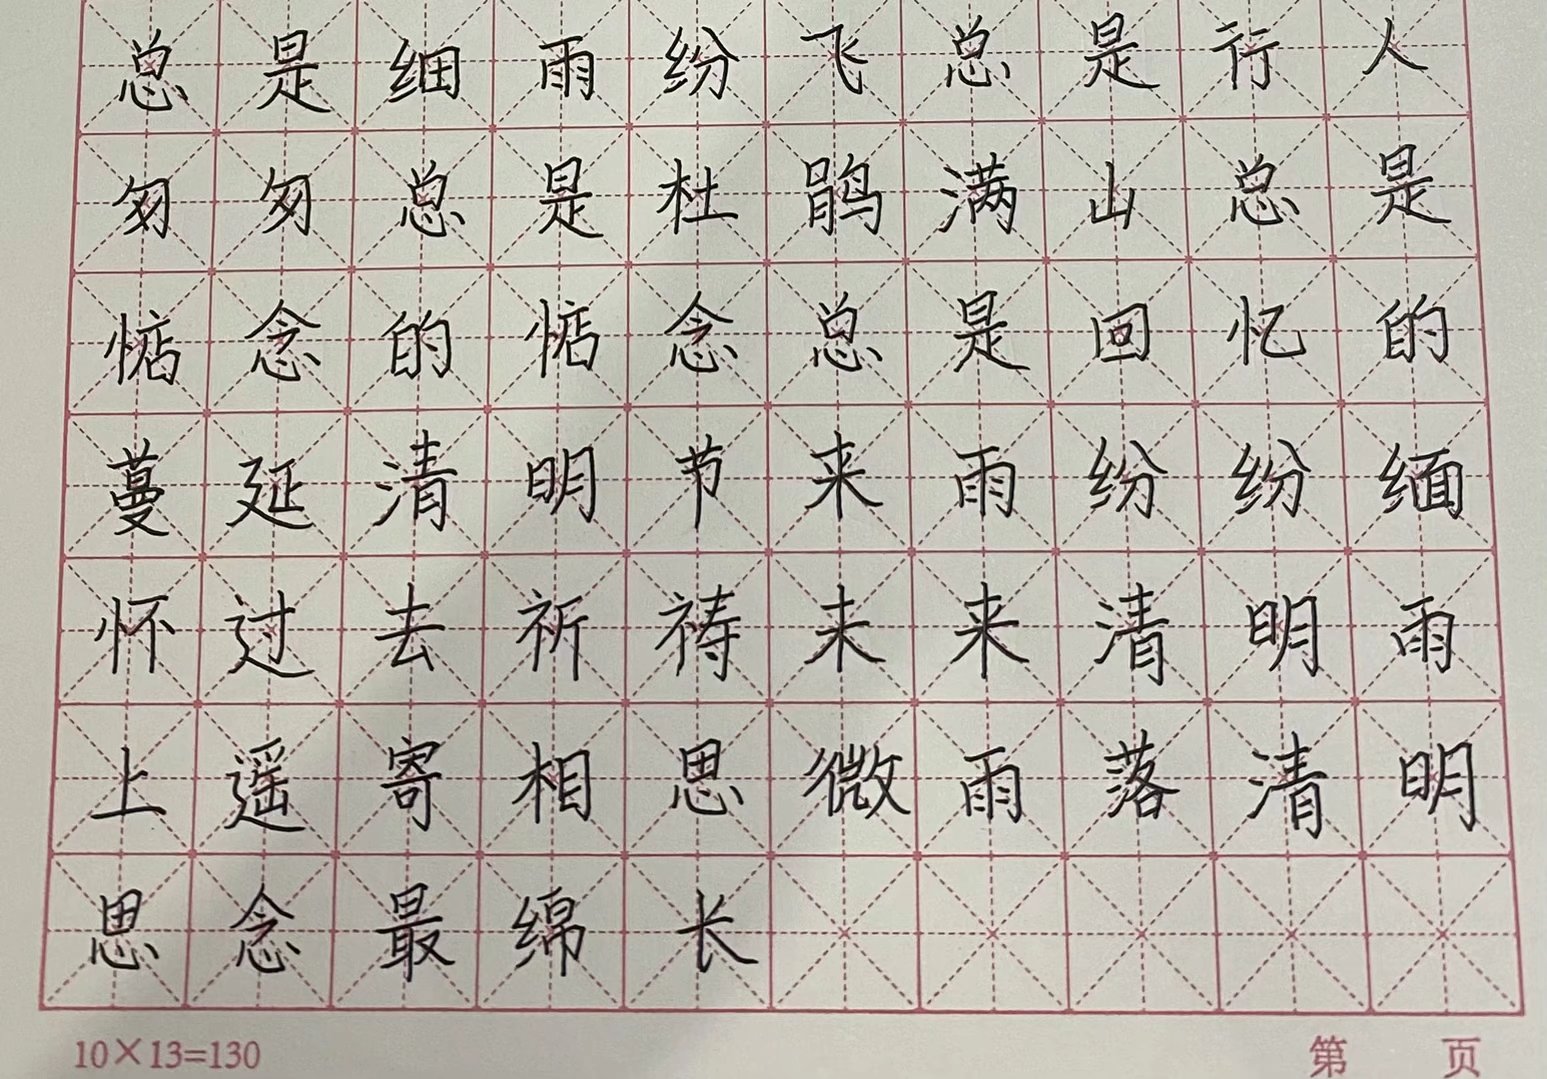 总是细雨纷飞总是行人
匆匆总是杜鹃满山总是
惦念的惦念总是回忆的
蔓延清明节来雨纷纷缅
怀过去祈祷未来清明雨
上遥寄相思微雨落清明
思念最绵长
10×13=130 第 页